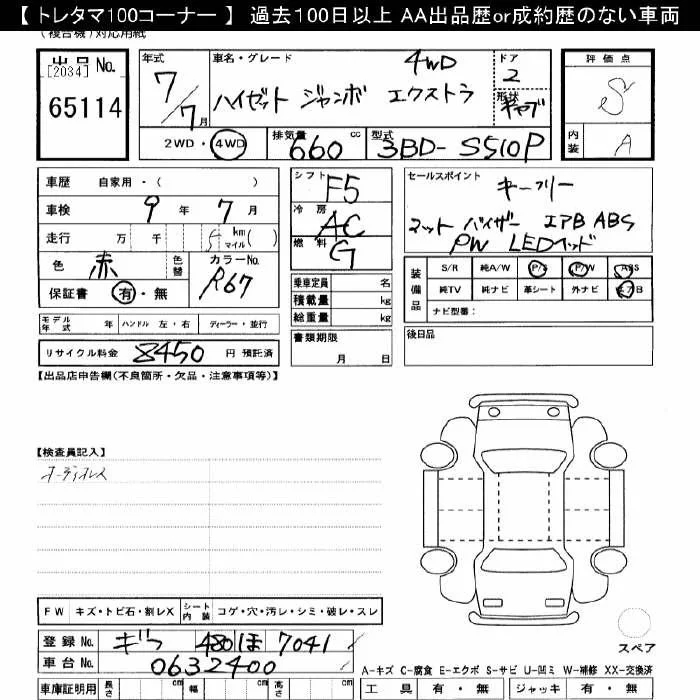 【 トレタマ100コーナー 】 過去100日以上 AA出品歴or成約歴のない車両
(複合機)対応用紙
出品 No.
[2034]
65114
年式 7/7月
車名・グレード 4WD
ハイゼット ジャンボ エクストラ
ドア 2
形状 キャブ
評価点 S
内装 A
2WD・4WD
排気量 660 cc
型式 3BD-S510P
車歴 自家用・( )
車検 9年 7月
走行 万 千 5 km マイル( )
色 赤 色替 カラーNo. R67
保証書 有・無
シフト F5
冷房 AC
燃料 G
セールスポイント キーフリー
マット バイザー エアB ABS
PW LEDヘッド
乗車定員 名
積載量 kg
総重量 kg
装備品 S/R 純A/W P/S P/W ABS
純TV 純ナビ 革シート 外ナビ エアB
ナビ型番:
モデル年式 年 ハンドル 左・右 ディーラー・並行
リサイクル料金 8450 円 預託済
書類期限 月 日
後日品
【出品店申告欄(不良箇所・欠品・注意事項等)】
【検査員記入】
オーディオレス
FW キズ・トビ石・割レX シート内装 コゲ・穴・汚レ・シミ・破レ・スレ
登録 No. 480 ほ 7041
車台 No. 0632400
スペア
A-キズ C-腐食 E-エクボ S-サビ U-凹ミ W-補修 XX-交換済
車庫証明用 長さ cm 幅 cm 高さ cm
工具 有・無 ジャッキ 有・無